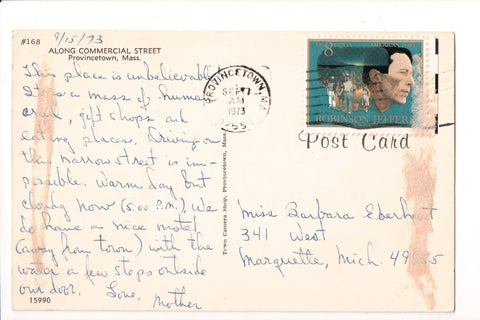 9/15/73
#168
ALONG COMMERCIAL STREET
Provincetown, Mass.
This place is unbelievable!
It's a mass of human
, gift shops and
eating places. Driving on
this narrow street is im-
possible. Warm day but
cloudy now (5:00 P.M.). We
do have a nice motel
(away from town) with the
water a few steps outside
our door. Love, Mother
15990
Town Camera Shop, Provincetown, Mass.
PROVINCETOWN, MA
SEP
AM
1973
8 CENTS AMERICAN POET
ROBINSON JEFFERS
Post Card
Miss Barbara Eberhart
341 West
Marquette, Mich.